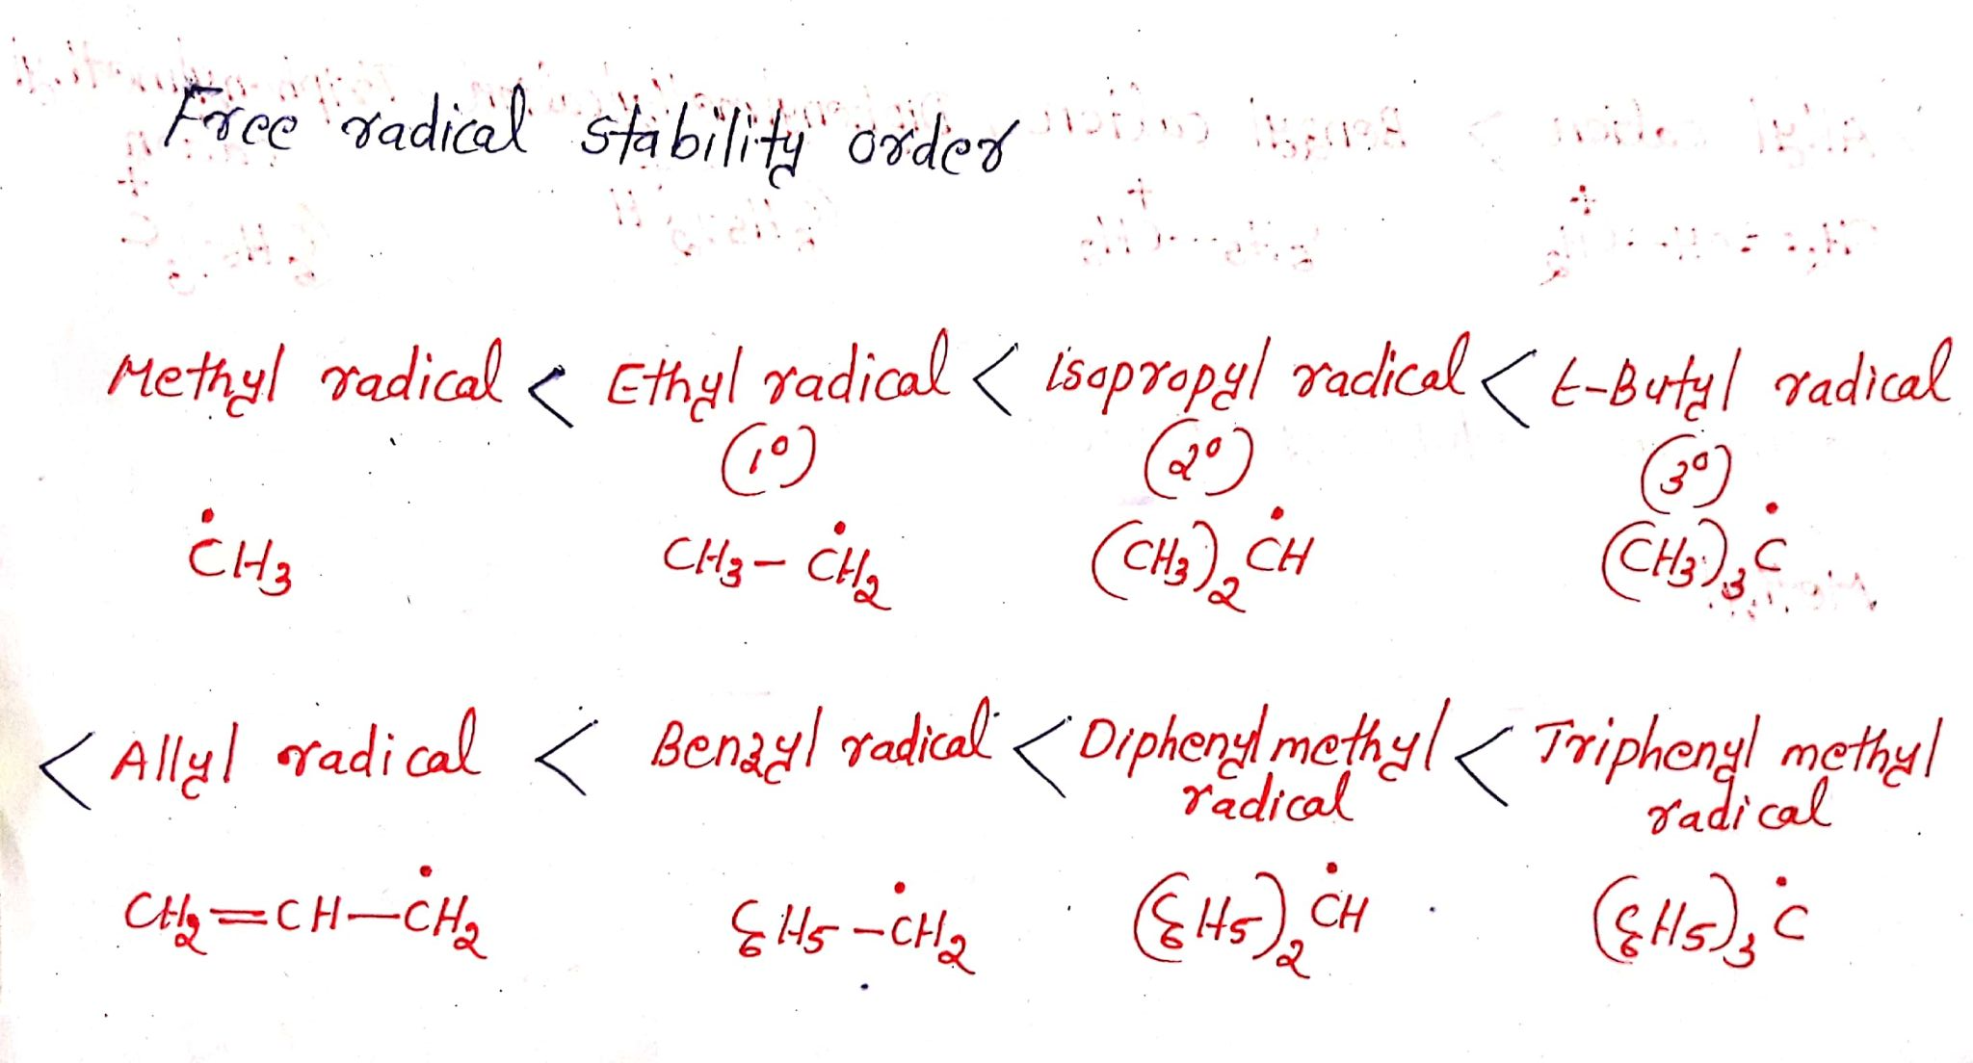 Free radical stability order
Methyl radical < Ethyl radical < isopropyl radical < t-Butyl radical
(1°) (2°) (3°)
ĊH₃ CH₃-ĊH₂ (CH₃)₂ĊH (CH₃)₃Ċ
< Allyl radical < Benzyl radical < Diphenyl methyl < Triphenyl methyl
radical radical
CH₂=CH-ĊH₂ C₆H₅-ĊH₂ (C₆H₅)₂ĊH (C₆H₅)₃Ċ